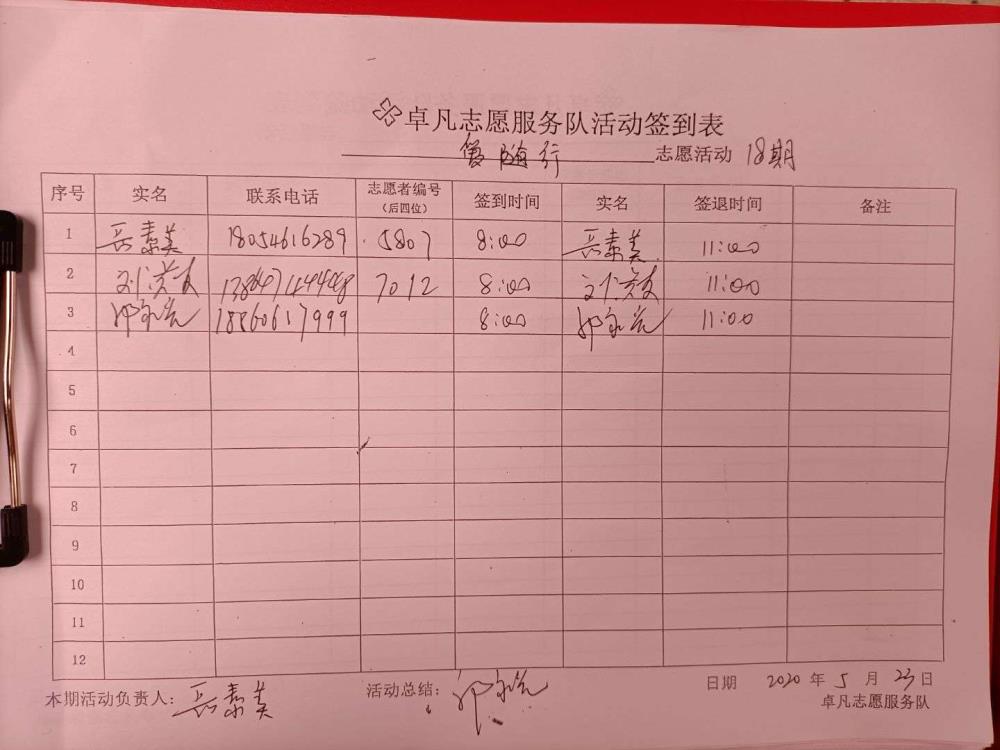 卓凡志愿服务队活动签到表
爱随行 志愿活动 18期
序号 实名 联系电话 志愿者编号（后四位） 签到时间 实名 签退时间 备注
1 岳素美 18054616289 5807 8:00 岳素美 11:00
2 7012 8:00 11:00
3 18860617999 8:00 11:00
4
5
6
7
8
9
10
11
12
本期活动负责人：岳素美 活动总结： 日期 2020 年 5 月 23 日
卓凡志愿服务队